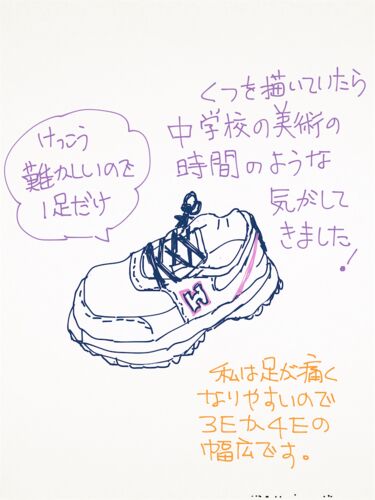 くつを描いていたら
中学校の美術の
時間のような
気がして
きました!
けっこう
難かしいので
1足だけ
H
私は足が痛く
なりやすいので
3Eか4Eの
幅広です。